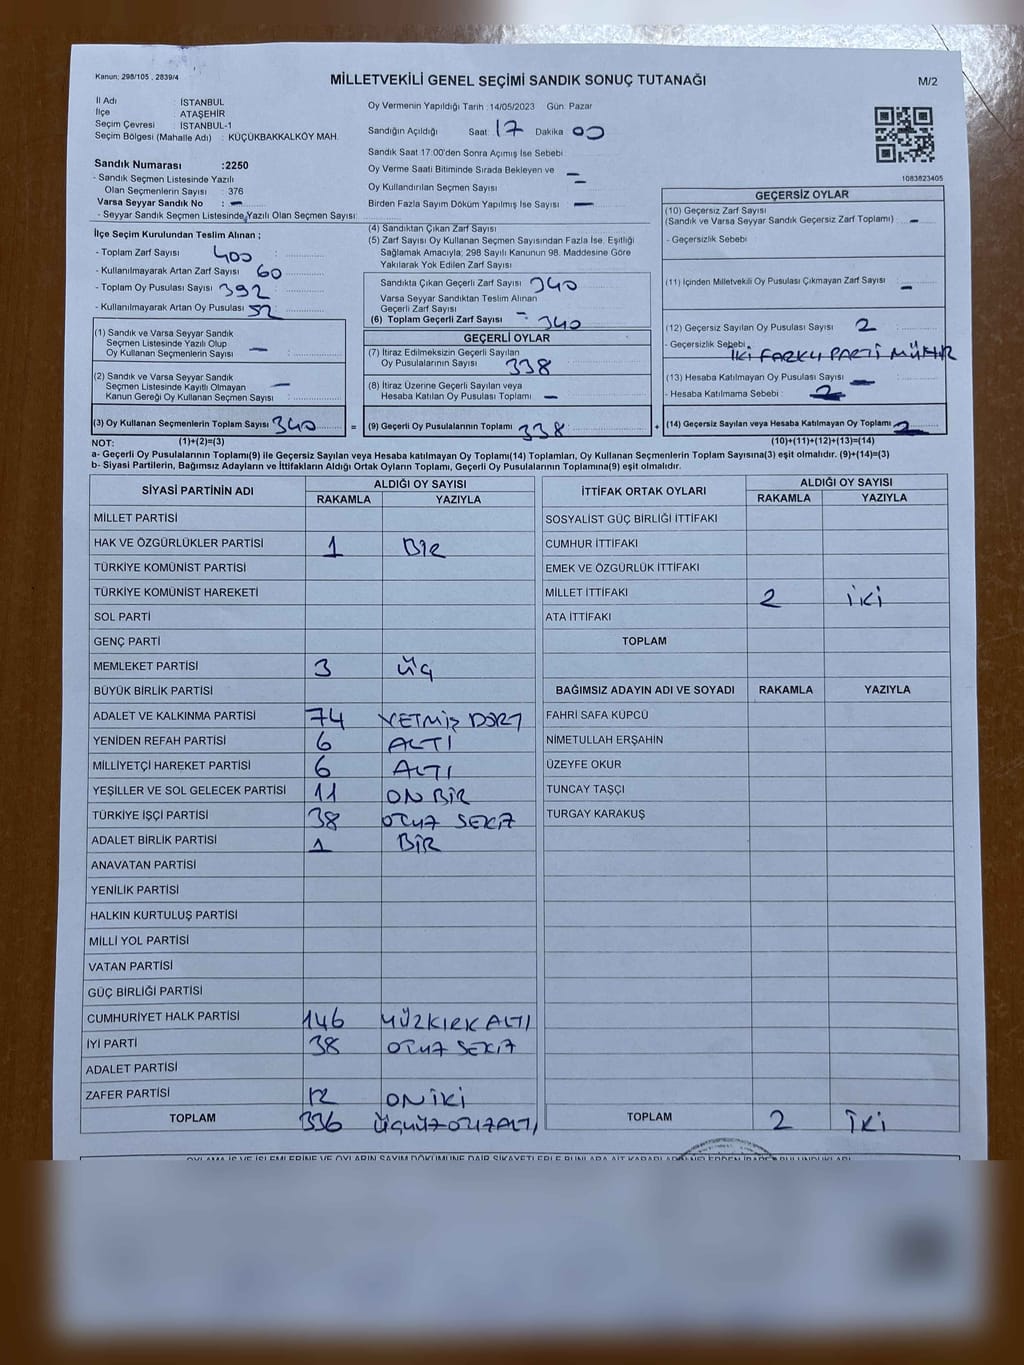 Kanun: 298/105 , 2839/4
MİLLETVEKİLİ GENEL SEÇİMİ SANDIK SONUÇ TUTANAĞI
M/2
İl Adı : İSTANBUL
İlçe : ATAŞEHİR
Seçim Çevresi : İSTANBUL-1
Seçim Bölgesi (Mahalle Adı) : KÜÇÜKBAKKALKÖY MAH.
Sandık Numarası :2250
- Sandık Seçmen Listesinde Yazılı
Olan Seçmenlerin Sayısı : 376
Varsa Seyyar Sandık No : -
- Seyyar Sandık Seçmen Listesinde Yazılı Olan Seçmen Sayısı:
İlçe Seçim Kurulundan Teslim Alınan ;
- Toplam Zarf Sayısı 400
- Kullanılmayarak Artan Zarf Sayısı 60
- Toplam Oy Pusulası Sayısı 392
- Kullanılmayarak Artan Oy Pusulası 52
(1) Sandık ve Varsa Seyyar Sandık
Seçmen Listesinde Yazılı Olup
Oy Kullanan Seçmenlerin Sayısı -
(2) Sandık ve Varsa Seyyar Sandık
Seçmen Listesinde Kayıtlı Olmayan
Kanun Gereği Oy Kullanan Seçmen Sayısı : -
(3) Oy Kullanan Seçmenlerin Toplam Sayısı 340
Oy Vermenin Yapıldığı Tarih : 14/05/2023 Gün: Pazar
Sandığın Açıldığı Saat: 17 Dakika 00
Sandık Saat 17:00'den Sonra Açımış İse Sebebi:
Oy Verme Saati Bitiminde Sırada Bekleyen ve -
Oy Kullandırılan Seçmen Sayısı -
Birden Fazla Sayım Döküm Yapılmış İse Sayısı : -
(4) Sandıktan Çıkan Zarf Sayısı
(5) Zarf Sayısı Oy Kullanan Seçmen Sayısından Fazla İse, Eşitliği
Sağlamak Amacıyla; 298 Sayılı Kanunun 98. Maddesine Göre
Yakılarak Yok Edilen Zarf Sayısı
Sandıkta Çıkan Geçerli Zarf Sayısı 340
Varsa Seyyar Sandıktan Teslim Alınan
Geçerli Zarf Sayısı: -
(6) Toplam Geçerli Zarf Sayısı : 340
GEÇERLİ OYLAR
(7) İtiraz Edilmeksizin Geçerli Sayılan
Oy Pusulasının Sayısı 338
(8) İtiraz Üzerine Geçerli Sayılan veya
Hesaba Katılan Oy Pusulası Toplamı -
= (9) Geçerli Oy Pusulalarının Toplamı 338
1083823405
GEÇERSİZ OYLAR
(10) Geçersiz Zarf Sayısı
(Sandık ve Varsa Seyyar Sandık Geçersiz Zarf Toplamı) -
- Geçersizlik Sebebi
(11) İçinden Milletvekili Oy Pusulası Çıkmayan Zarf Sayısı -
(12) Geçersiz Sayılan Oy Pusulası Sayısı 2
- Geçersizlik Sebebi İKİ FARKLI PARTİ MÜHÜR
(13) Hesaba Katılmayan Oy Pusulası Sayısı -
- Hesaba Katılmama Sebebi :
+ (14) Geçersiz Sayılan veya Hesaba Katılmayan Oy Toplamı 2
NOT: (1)+(2)=(3) (10)+(11)+(12)+(13)=(14)
a- Geçerli Oy Pusulalarının Toplamı(9) ile Geçersiz Sayılan veya Hesaba katılmayan Oy Toplamı(14) Toplamları, Oy Kullanan Seçmenlerin Toplam Sayısına(3) eşit olmalıdır. (9)+(14)=(3)
b- Siyasi Partilerin, Bağımsız Adayların ve İttifakların Aldığı Ortak Oyların Toplamı, Geçerli Oy Pusulalarının Toplamına(9) eşit olmalıdır.
SİYASİ PARTİNİN ADI ALDIĞI OY SAYISI
RAKAMLA YAZIYLA
MİLLET PARTİSİ
HAK VE ÖZGÜRLÜKLER PARTİSİ 1 BİR
TÜRKİYE KOMÜNİST PARTİSİ
TÜRKİYE KOMÜNİST HAREKETİ
SOL PARTİ
GENÇ PARTİ
MEMLEKET PARTİSİ 3 ÜÇ
BÜYÜK BİRLİK PARTİSİ
ADALET VE KALKINMA PARTİSİ 74 YETMİŞ DÖRT
YENİDEN REFAH PARTİSİ 6 ALTI
MİLLİYETÇİ HAREKET PARTİSİ 6 ALTI
YEŞİLLER VE SOL GELECEK PARTİSİ 11 ON BİR
TÜRKİYE İŞÇİ PARTİSİ 38 OTUZ SEKİZ
ADALET BİRLİK PARTİSİ 1 BİR
ANAVATAN PARTİSİ
YENİLİK PARTİSİ
HALKIN KURTULUŞ PARTİSİ
MİLLİ YOL PARTİSİ
VATAN PARTİSİ
GÜÇ BİRLİĞİ PARTİSİ
CUMHURİYET HALK PARTİSİ 146 YÜZKIRK ALTI
İYİ PARTİ 38 OTUZ SEKİZ
ADALET PARTİSİ
ZAFER PARTİSİ 12 ON İKİ
TOPLAM 336 ÜÇYÜZ OTUZALTI
İTTİFAK ORTAK OYLARI ALDIĞI OY SAYISI
RAKAMLA YAZIYLA
SOSYALİST GÜÇ BİRLİĞİ İTTİFAKI
CUMHUR İTTİFAKI
EMEK VE ÖZGÜRLÜK İTTİFAKI
MİLLET İTTİFAKI 2 İKİ
ATA İTTİFAKI
TOPLAM
BAĞIMSIZ ADAYIN ADI VE SOYADI RAKAMLA YAZIYLA
FAHRİ SAFA KÜPCÜ
NİMETULLAH ERŞAHİN
ÜZEYFE OKUR
TUNCAY TAŞÇI
TURGAY KARAKUŞ
TOPLAM 2 İKİ